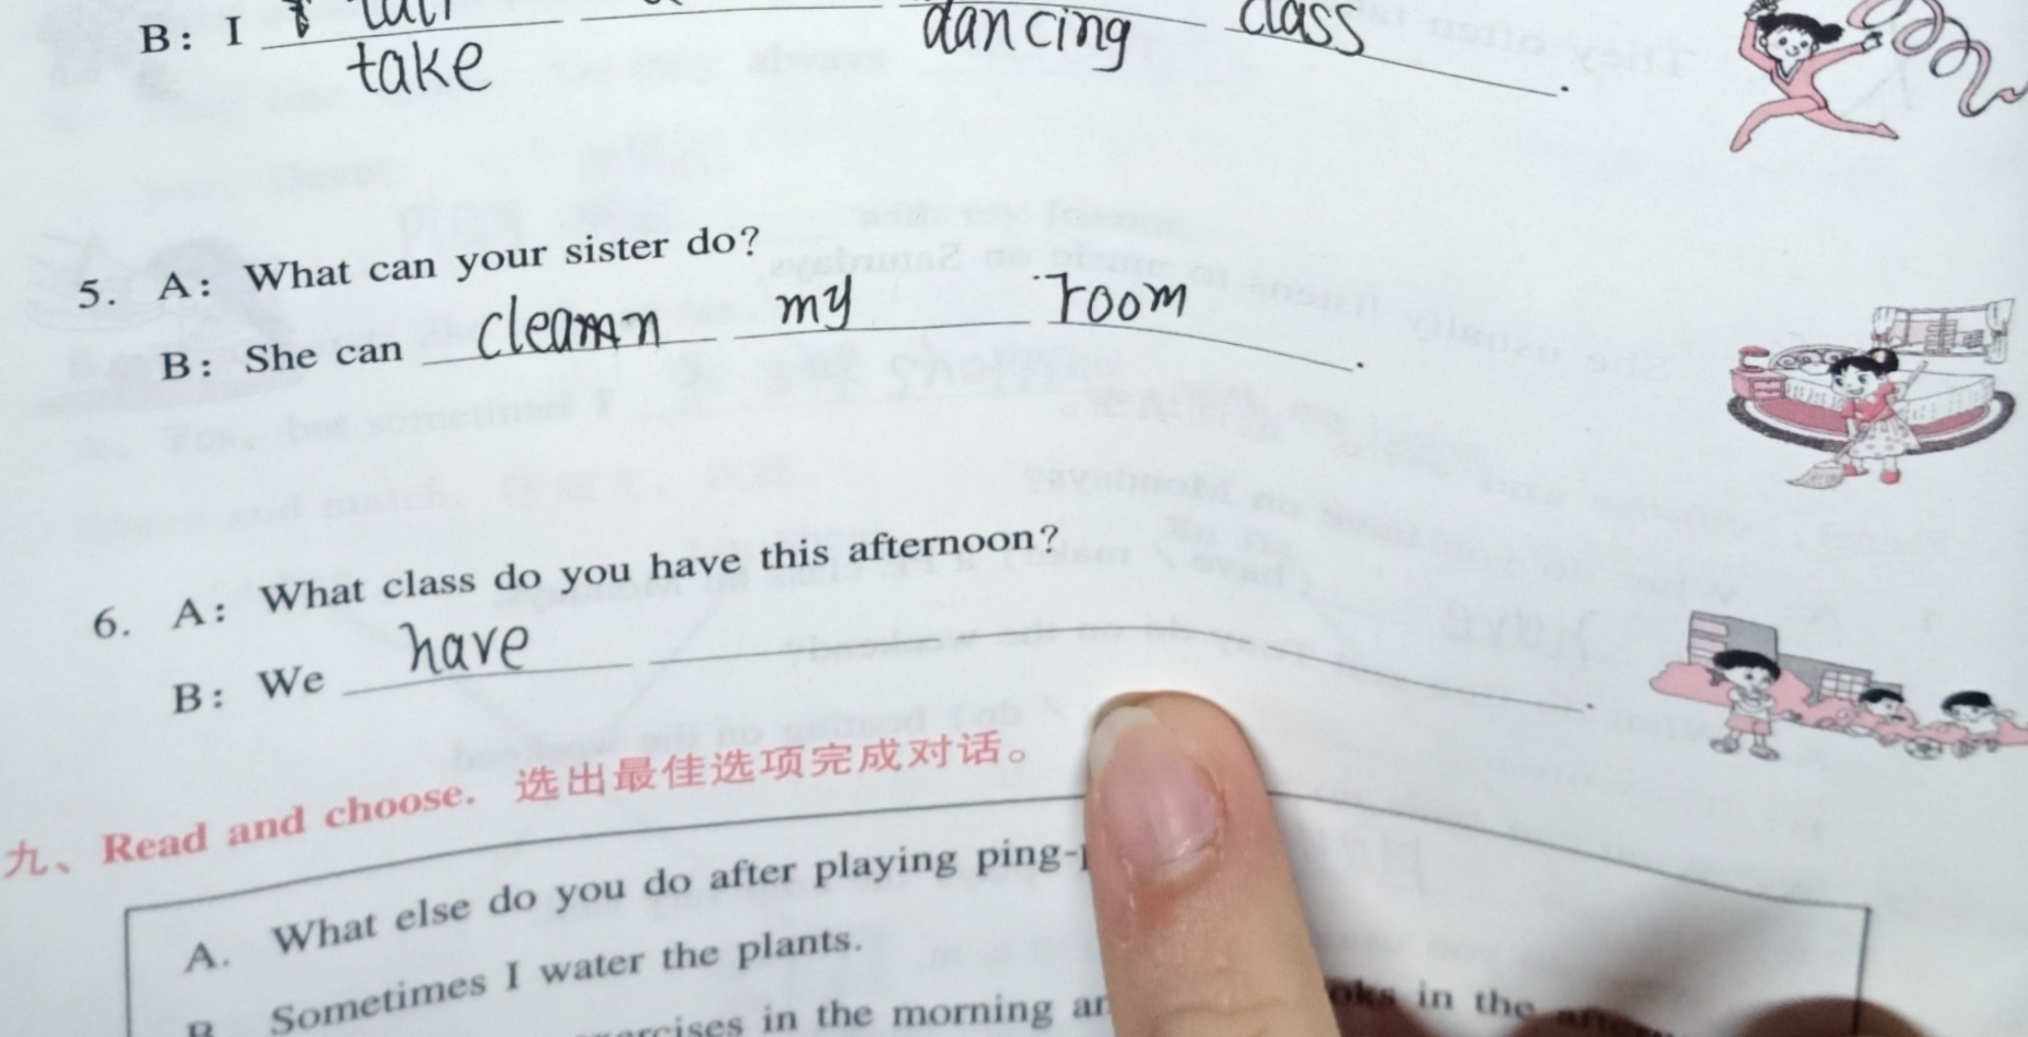 B: I take dancing class.
5. A: What can your sister do?
B: She can my room.
6. A: What class do you have this afternoon?
B: We have .
九、Read and choose. 选出最佳选项完成对话。
A. What else do you do after playing ping-
B Sometimes I water the plants.
in the morning
in the